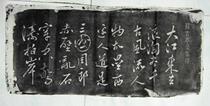 大江東去
浪淘盡千
古風流人
物故壘西
邊人道是
三國周郎
赤壁亂石
濤拍岸